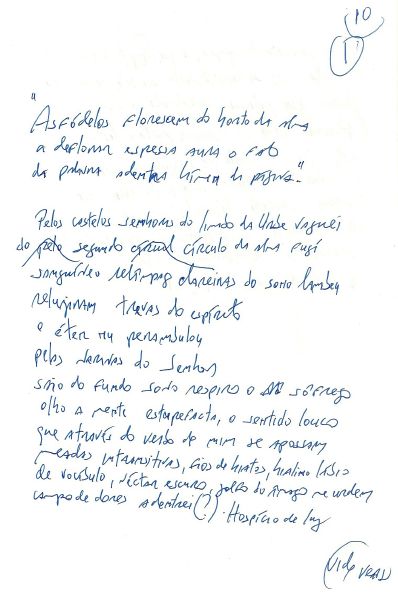 10
1
"Asfódelos florescem do horto da alma
a deflorar espessa aura o fato
da palavra adentra hímen da página."
Pelos castelos senhoras do limbo da Urbe vaguei
do pelo segundo círculo da alma fugi
sanguíneo relâmpago clareiras do sono lambeu
relusiram travas do espírito
o éter me perambulou
pelas do Senhor
saio do fundo sono respiro o sôfrego
olho a mente estupefacta, o sentido louco
que através do verbo de mim se apossam
meadas intransitivas, fios de hiatos, hialino lábio
de vocábulo, néctar escuro, golfo do âmago me urdem
campo de dores adentrei(?). Hospício de luz